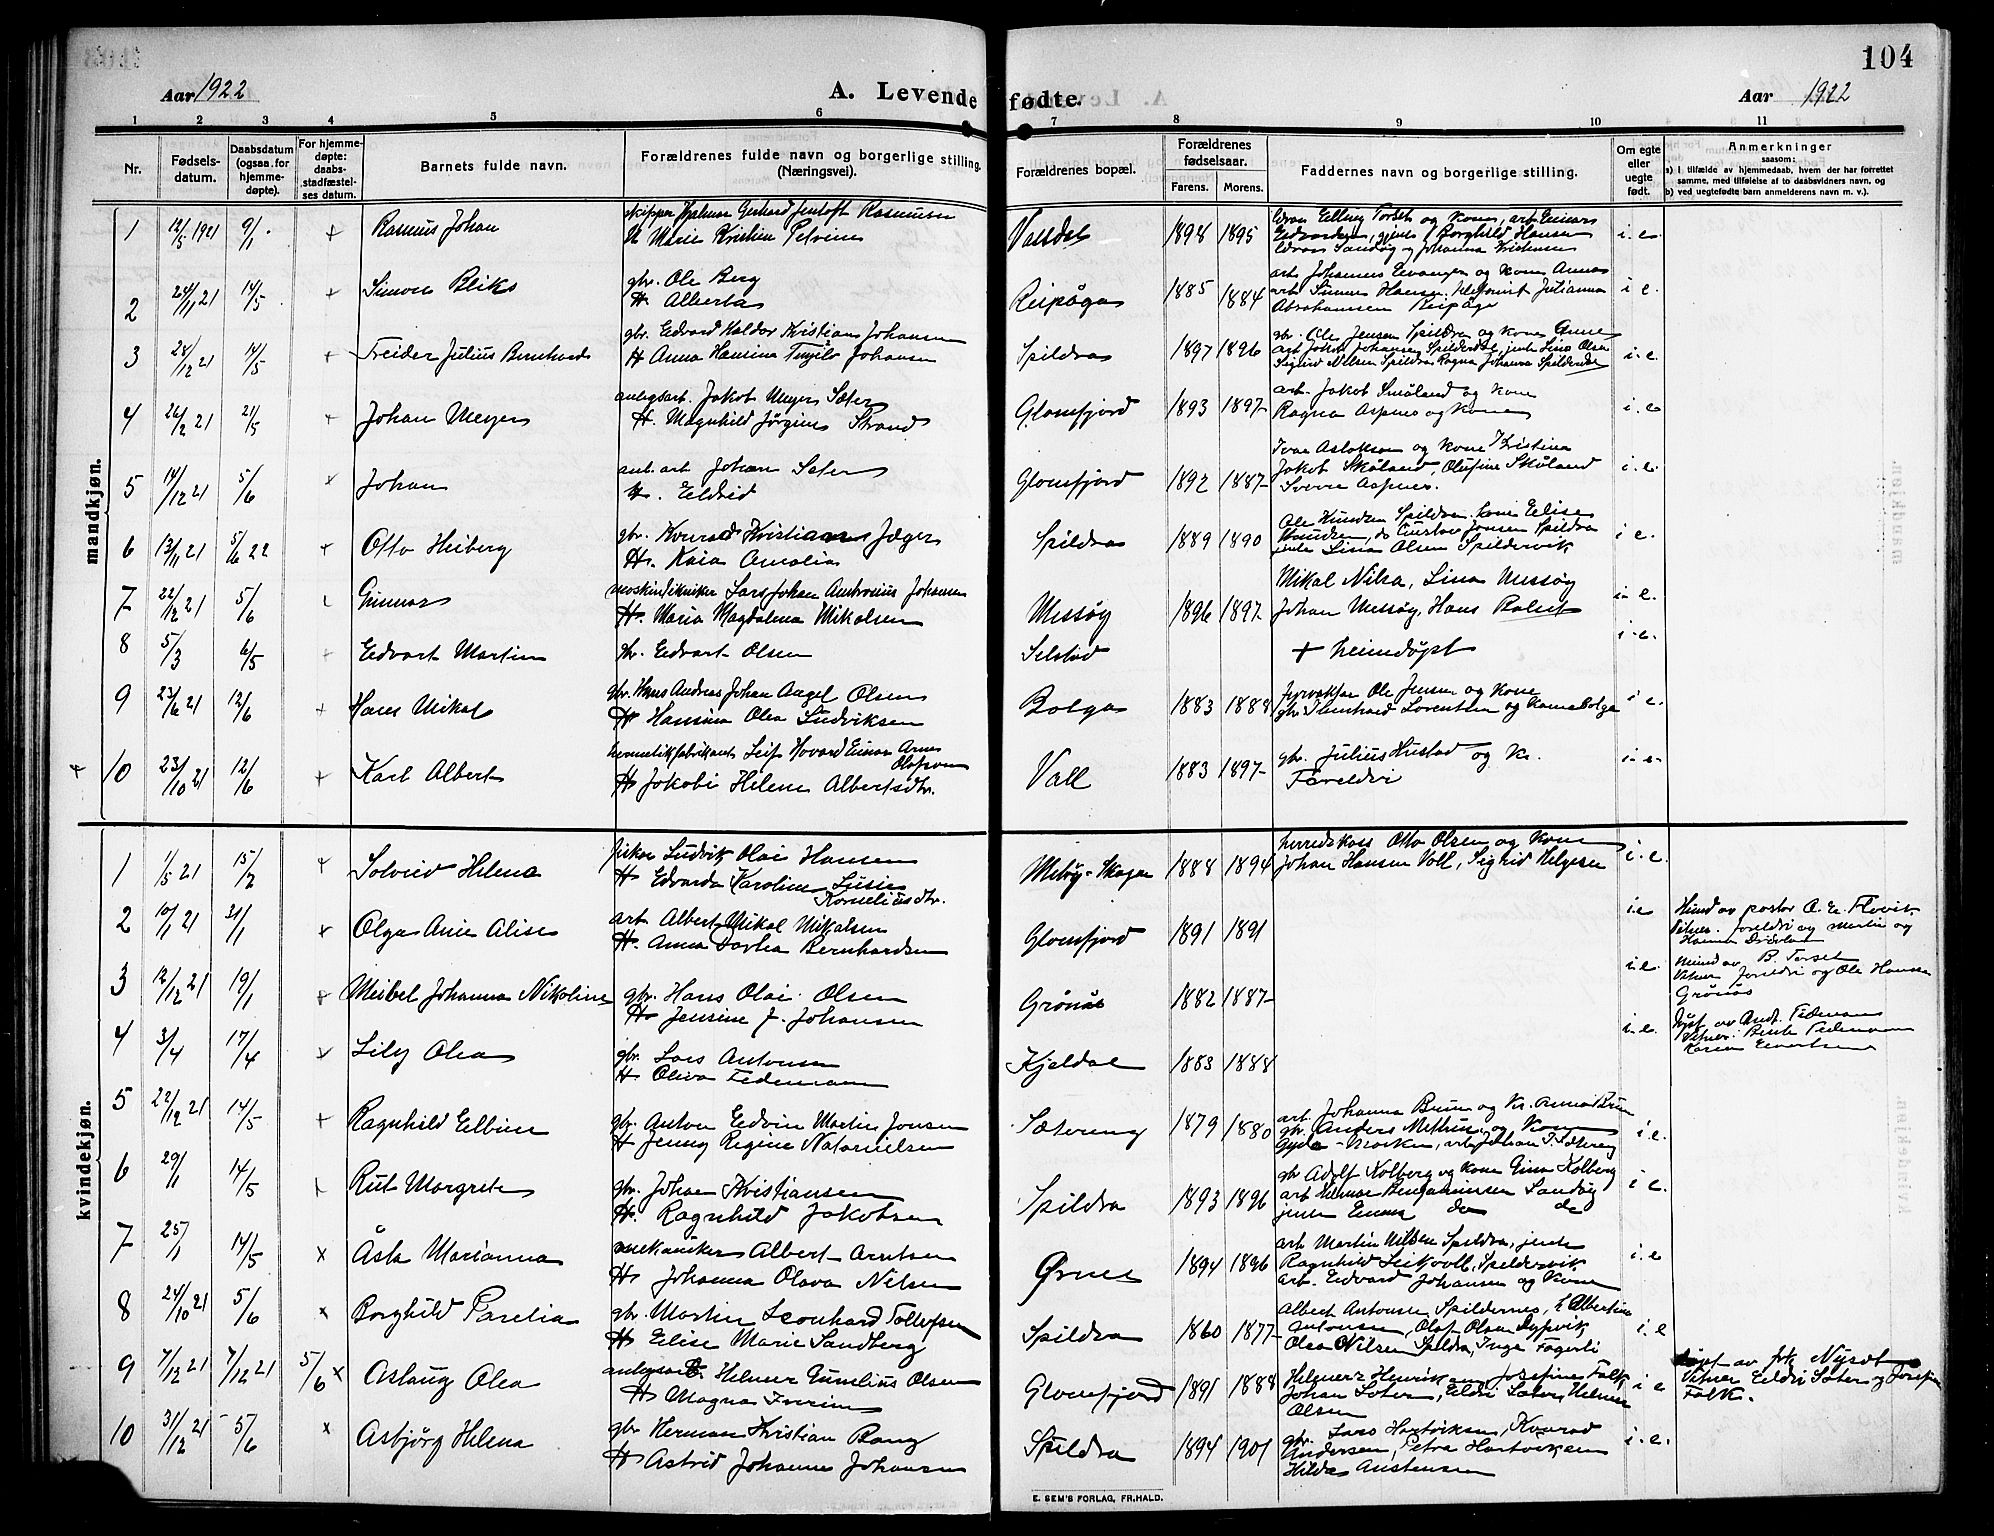 104
Aar 1922
A. Levende fødte.
Aar 1922
1 2 3 4 5 6 7 8 9 10 11
Nr.
Fødsels-
datum.
Daabsdatum
(ogsaa for
hjemme-
døpte).
For hjemme-
døpte:
daabs-
stadfæstel-
ses datum.
Barnets fulde navn.
Forældrenes fulde navn og borgerlige stilling.
(Næringsvei).
Forældrenes bopæl.
Forældrenes
fødselsaar.
Farens. Morens.
Faddernes navn og borgerlige stilling.
Om egte
eller
uegte
født.
Anmerkninger
saasom:
a) I tilfælde av hjemmedaab, hvem der har forrettet
samme, med tilføielse af to daabsvidners navn, og
b) ved uegtefødte barn anmelderens navn m. v.).
mandkjøn.
1 12/5 1921 9/1 + Rasmus Johan
skipper Hjalmar Gerhard Jentoft Rasmussen
H Marie Kristine Petrine
Valldal 1898 1895
i. e.
2 24/11 21 14/5 + Simon Bliks
gbr. Ole Berg
H Alberta
Reipåga 1885 1884
arb Johannes Evangen og kone Anna
Abrahamsen Reipåge
i e.
3 24/12 21 14/5 + Treider Julius Bernhard
gbr. Edvard Haldor Kristian Johansen
H Anna Hansina Johansen
Spildra 1897 1896
gbr. Ole Jensen Spildra og kone Anne
i. e.
4 26/2 21 21/5 + Johan Meyer
anlegsarb. Jakob Meyer Sæter
H. Magnhild Jørgine Strand
Glomfjord 1893 1897
arb. Jakob Småland og kone
Ragna Aspnes og kone
i. e
5 14/12 21 5/6 × Johan
anl. arb Johan Sæter
H. Eldrid
Glomfjord 1892 1887
Ivar Aslaksen og kone Kristina
Jakob Skåland, Olufine Skåland
Sverre Aspnes.
i. e.
6 13/11 21 5/6 22 + Otto Heiberg
gbr. Konrad Kristian Jæger
H. Kaia Amalia
Spildra 1889 1890
Ole Knudsen Spildra kone Elise
Knudsen, do Gustav Jensen Spildra
jente Lina Olsen Spildervik
i e.
7 22/12 21 5/6 Gunnar
maskintekniker Lars Johan Ambrosius Johansen
H. Maria Magdalena Mikalsen
Messøy 1896 1897
Mikal Nilsa, Lina Messøy
Johan Messøy, Hans Bolset
i. e.
8 5/3 6/5 + Edvart Martin
gbr. Edvart Olsen
Selstad
+ heimdøpt
i. e.
9 23/6 21 12/6 + Hans Mikal
gbr. Hans Andreas Johan Angel Olsen
H Hansina Olea Ludviksen
Bolga 1883 1888
Ole Jensen og kone
gbr. Bernhard Lorentsen og kone Bolga
i e.
+ 10 23/10 21 12/6 + Karl Albert
hermetikfabrikant Leif Hovard Einar Arne
Olafsen
H Jakobi Helene Albertsdtr.
Vall 1883 1897
gbr. Julius Hustad og K.
Foreldri
i. e.
kvindekjøn.
1 1/5 21 15/2 + Solveid Helena
fisker Ludvik Olai Hansen
H Edvarda Karoline Lusie
Korneliusdtr.
Meløy-Skagen 1888 1894
herredskass Otto Olsen og kone
Johan Hansen Voll, Sigrid Helgesen
i. e.
2 10/1 21 31/1 + Olga Anie Alise
arb Albert Mikal Mikalsen
H. Anna Sofia Bernhardsen
Glomfjord 1891 1891
i. e
Heimd av pastor O. E. Flovik
Vitner. foreldri og Martin og
Hanna
3 12/12 21 19/1 + Meibel Johanna Nikoline
gbr. Hans Olai Olsen
H. Jensine J. Johansen
Grønås 1882 1887
i. e.
Heimd av B. Torset
Vitner foreldri og Ole Hansen
Grønås
4 3/4 17/4 × Lily Olea
gbr. Lars Antonsen
H. Oliva Tidemann
Kjeldal 1883 1888
i. e.
Døpt av Andr. Tidemann
Vitner: Berit Tidemann
Karen Evertsen
5 22/12 21 14/5 + Ragnhild Elbine
gbr. Anton Edvin Martin Jensen
H Jenny Regine Natanielsen
Sætereng 1879 1880
arb. Johanna Brun og Kr. Anna Brun
i. e.
6 29/1 14/5 Rut Margrete
gbr. Johan Kristiansen
H. Ragnhild Jakobsen
Spildra 1893 1896
gbr Adolf Kolberg og kone Gina Kolberg
arb Helmar Benjaminsen Sandøy
jente Emma do do
i e.
7 25/1 14/5 × Åsta Marianna
mekaniker Albert Arntsen
H. Johanna Olava Nilsen
Ørnes 1894 1896
arb. Martin Nilsen Spildra, jente
Ragnhild Leikvoll, Spildervik
arb. Edvard Johansen og kone
i. e
8 24/10 21 5/6 × Borghild Parelia
gbr. Martin Leonhard Tollefsen
H Elise Marie Sandberg
Spildra 1860 1877
Albert Antonsen Spildernes, f Albertine
Antonsen, Olaf Olsen Dypvik
Olea Nilsen Spildra, Inga Fagerli
i. e
9 7/12 21 7/12 21 5/6 × Aslaug Olea
anlegsarb. Helmer Cornelius Olsen
H. Magna Iverine
Glomfjord 1891 1888
Helmer Henriksen, Josefine Falk
Johan Sæter, Eldri Sæter, Helmer
Olsen
i e
døpt av frk Nysdt
Vitner Eldri Sæter og Josefine
Falk.
10 31/12 21 5/6 × Asbjørg Helena
gbr. Herman Kristian Bang
H Astrid Johanne Johansen
Spildra 1894 1901
gbr. Lars Hartviksen, Konrad
Andersen, Petra Hartviksen
Hilda Austensen
i. e.
E. SEM'S FORLAG, FR.HALD.